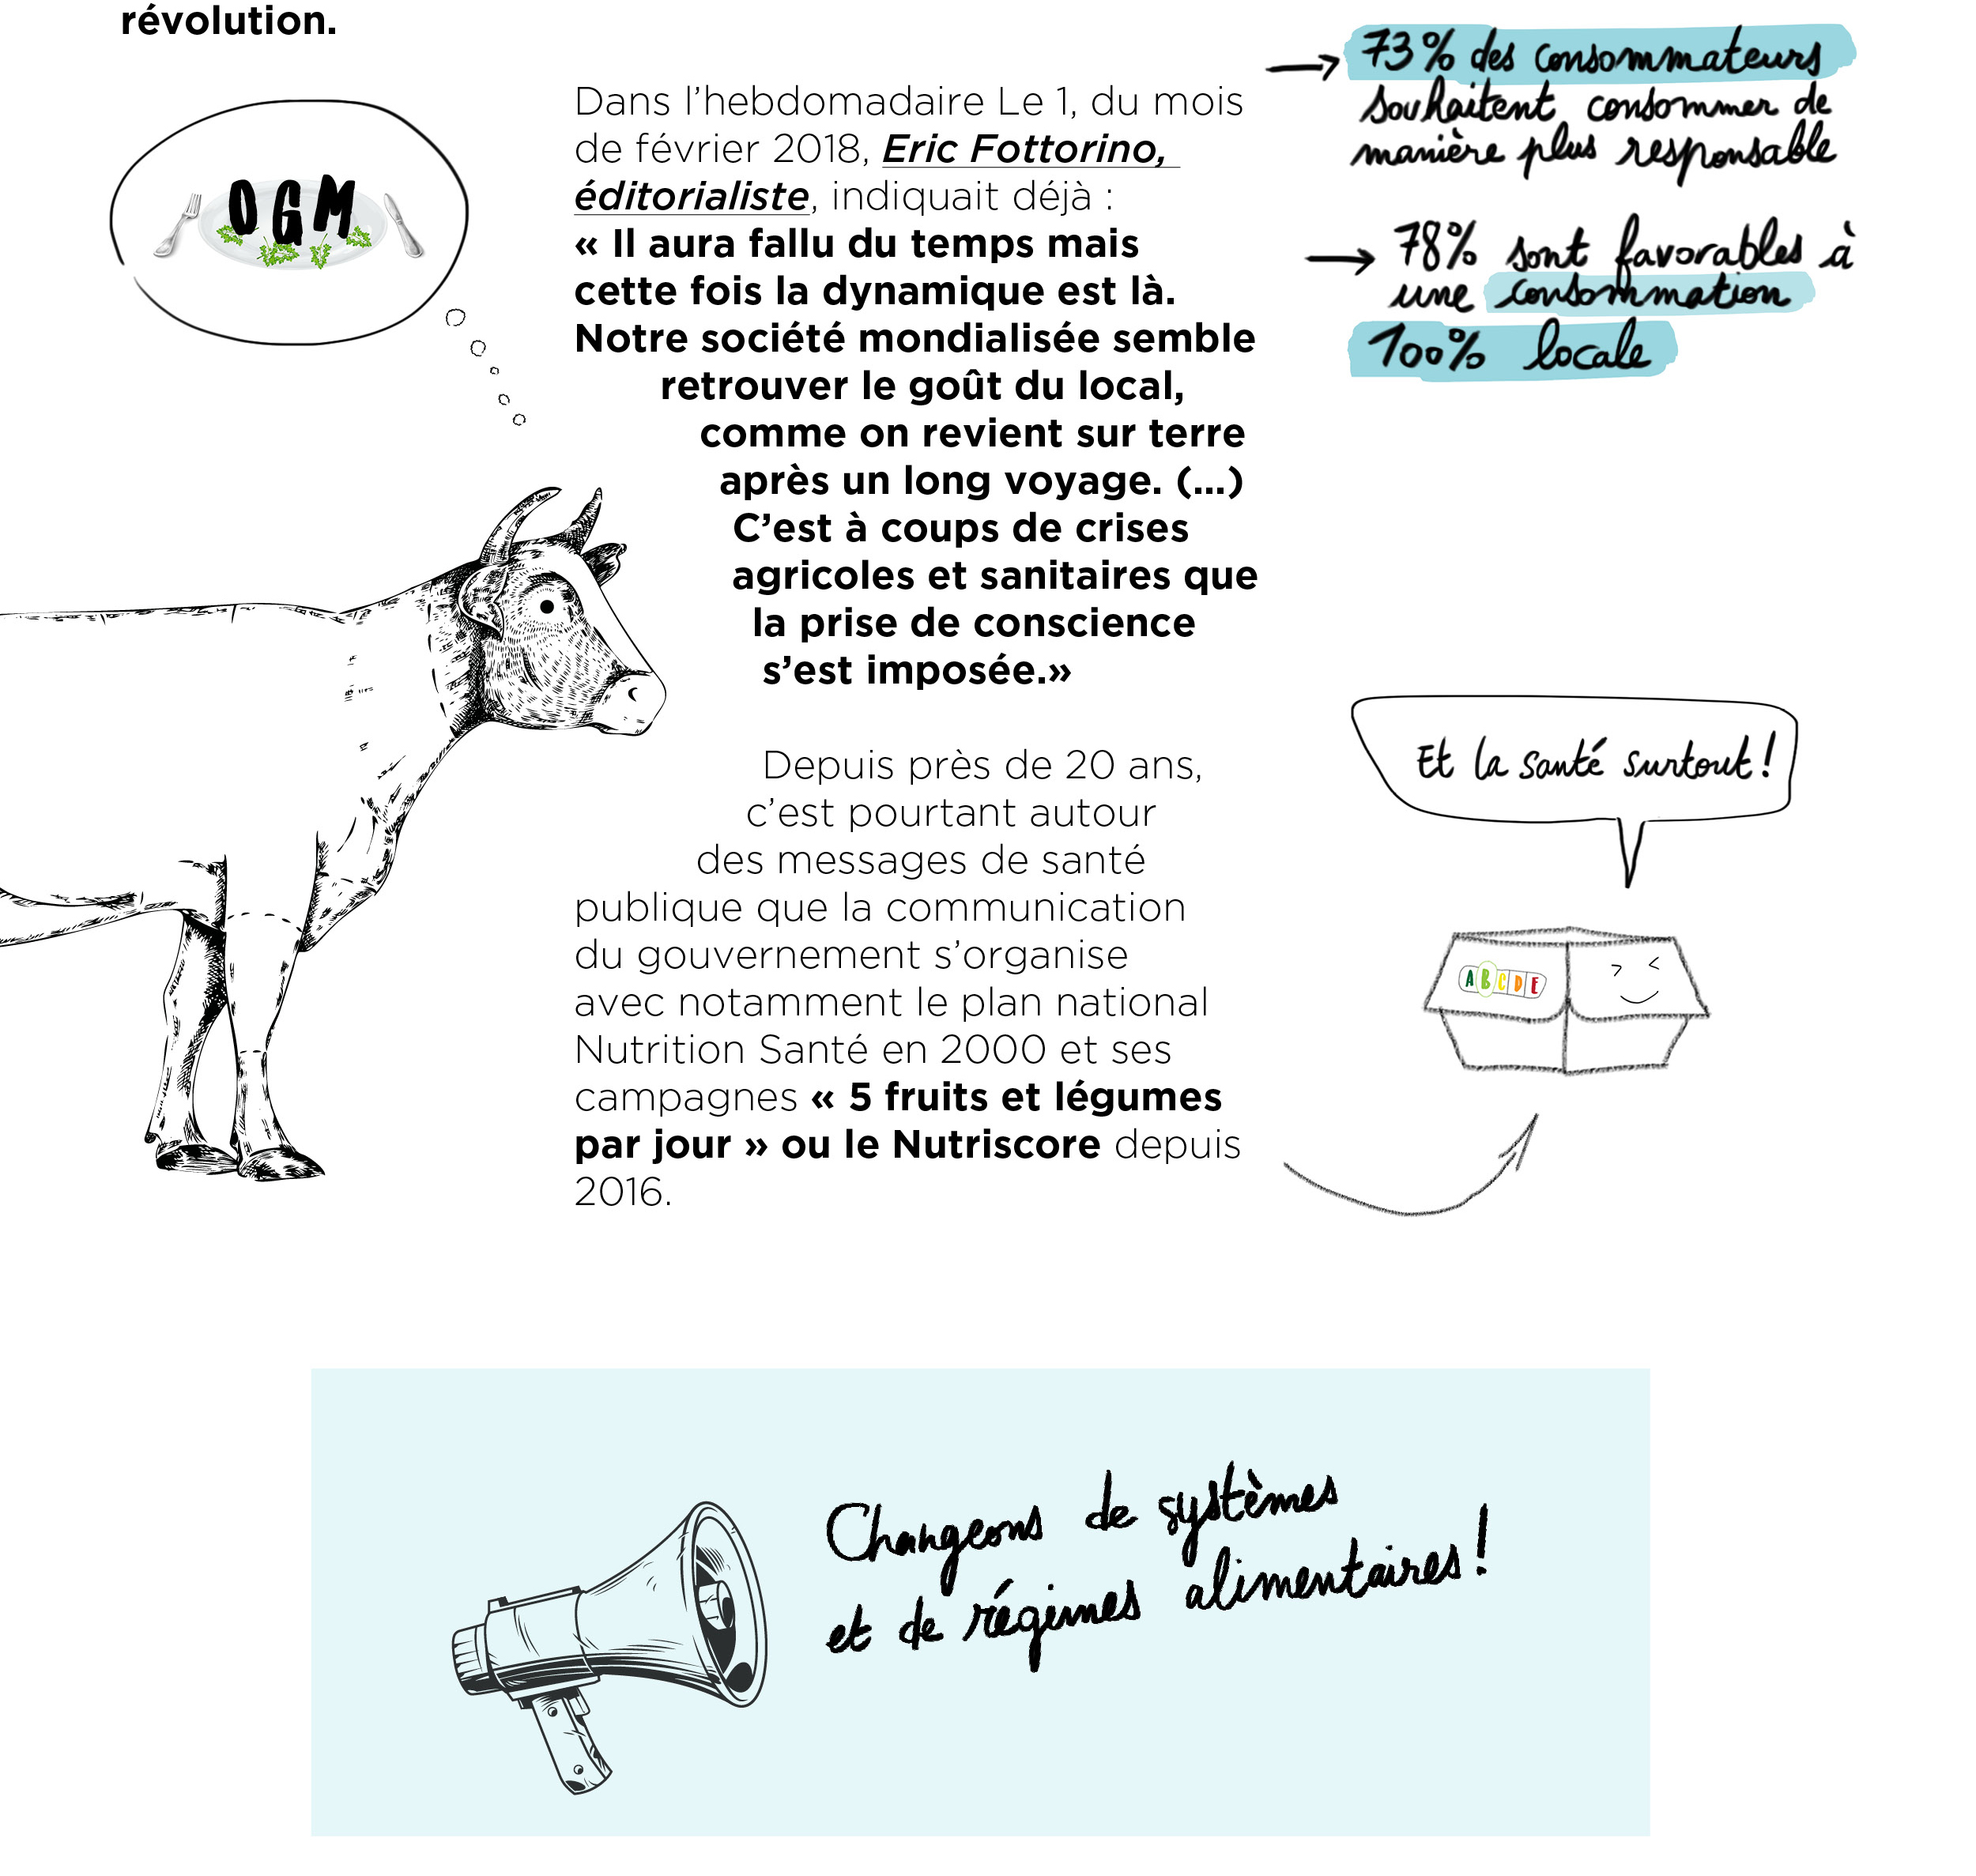 révolution.
OGM
Dans l’hebdomadaire Le 1, du mois
de février 2018, Eric Fottorino,
éditorialiste, indiquait déjà :
« Il aura fallu du temps mais
cette fois la dynamique est là.
Notre société mondialisée semble
retrouver le goût du local,
comme on revient sur terre
après un long voyage. (...)
C’est à coups de crises
agricoles et sanitaires que
la prise de conscience
s’est imposée.»
Depuis près de 20 ans,
c’est pourtant autour
des messages de santé
publique que la communication
du gouvernement s’organise
avec notamment le plan national
Nutrition Santé en 2000 et ses
campagnes « 5 fruits et légumes
par jour » ou le Nutriscore depuis
2016.
73% des consommateurs
souhaitent consommer de
manière plus responsable
78% sont favorables à
une consommation
100% locale
Et la santé surtout !
ABCDE
Changeons de systèmes
et de régimes alimentaires !